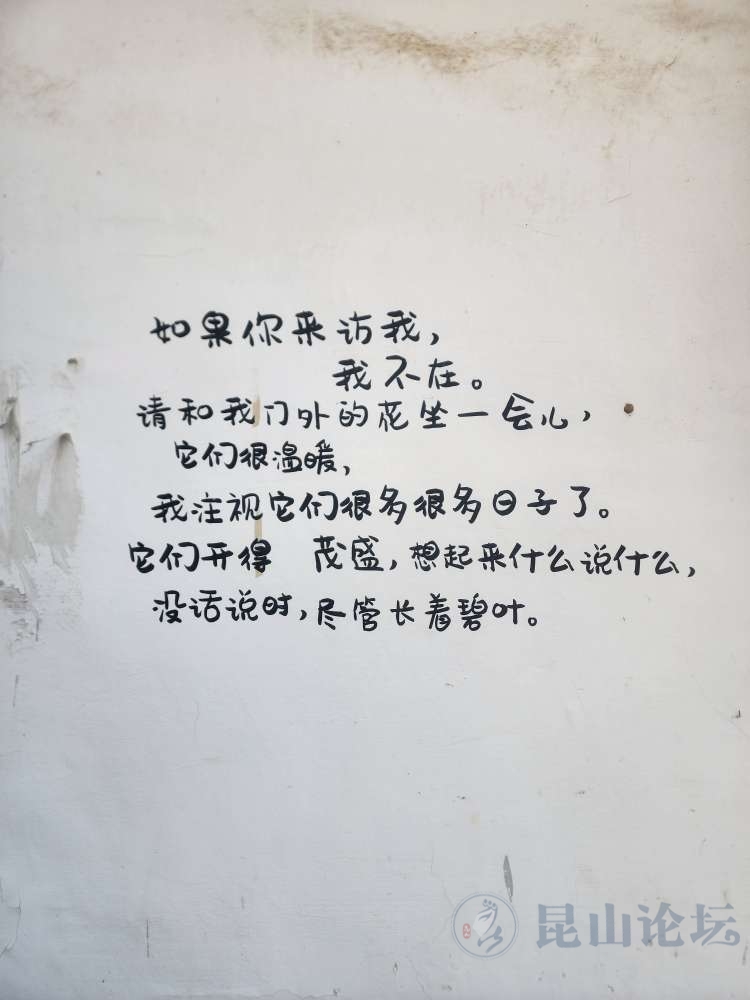 如果你来访我，
我不在。
请和我门外的花坐一会儿，
它们很温暖，
我注视它们很多很多日子了。
它们开得 茂盛，想起来什么说什么，
没话说时，尽管长着碧叶。
昆山论坛